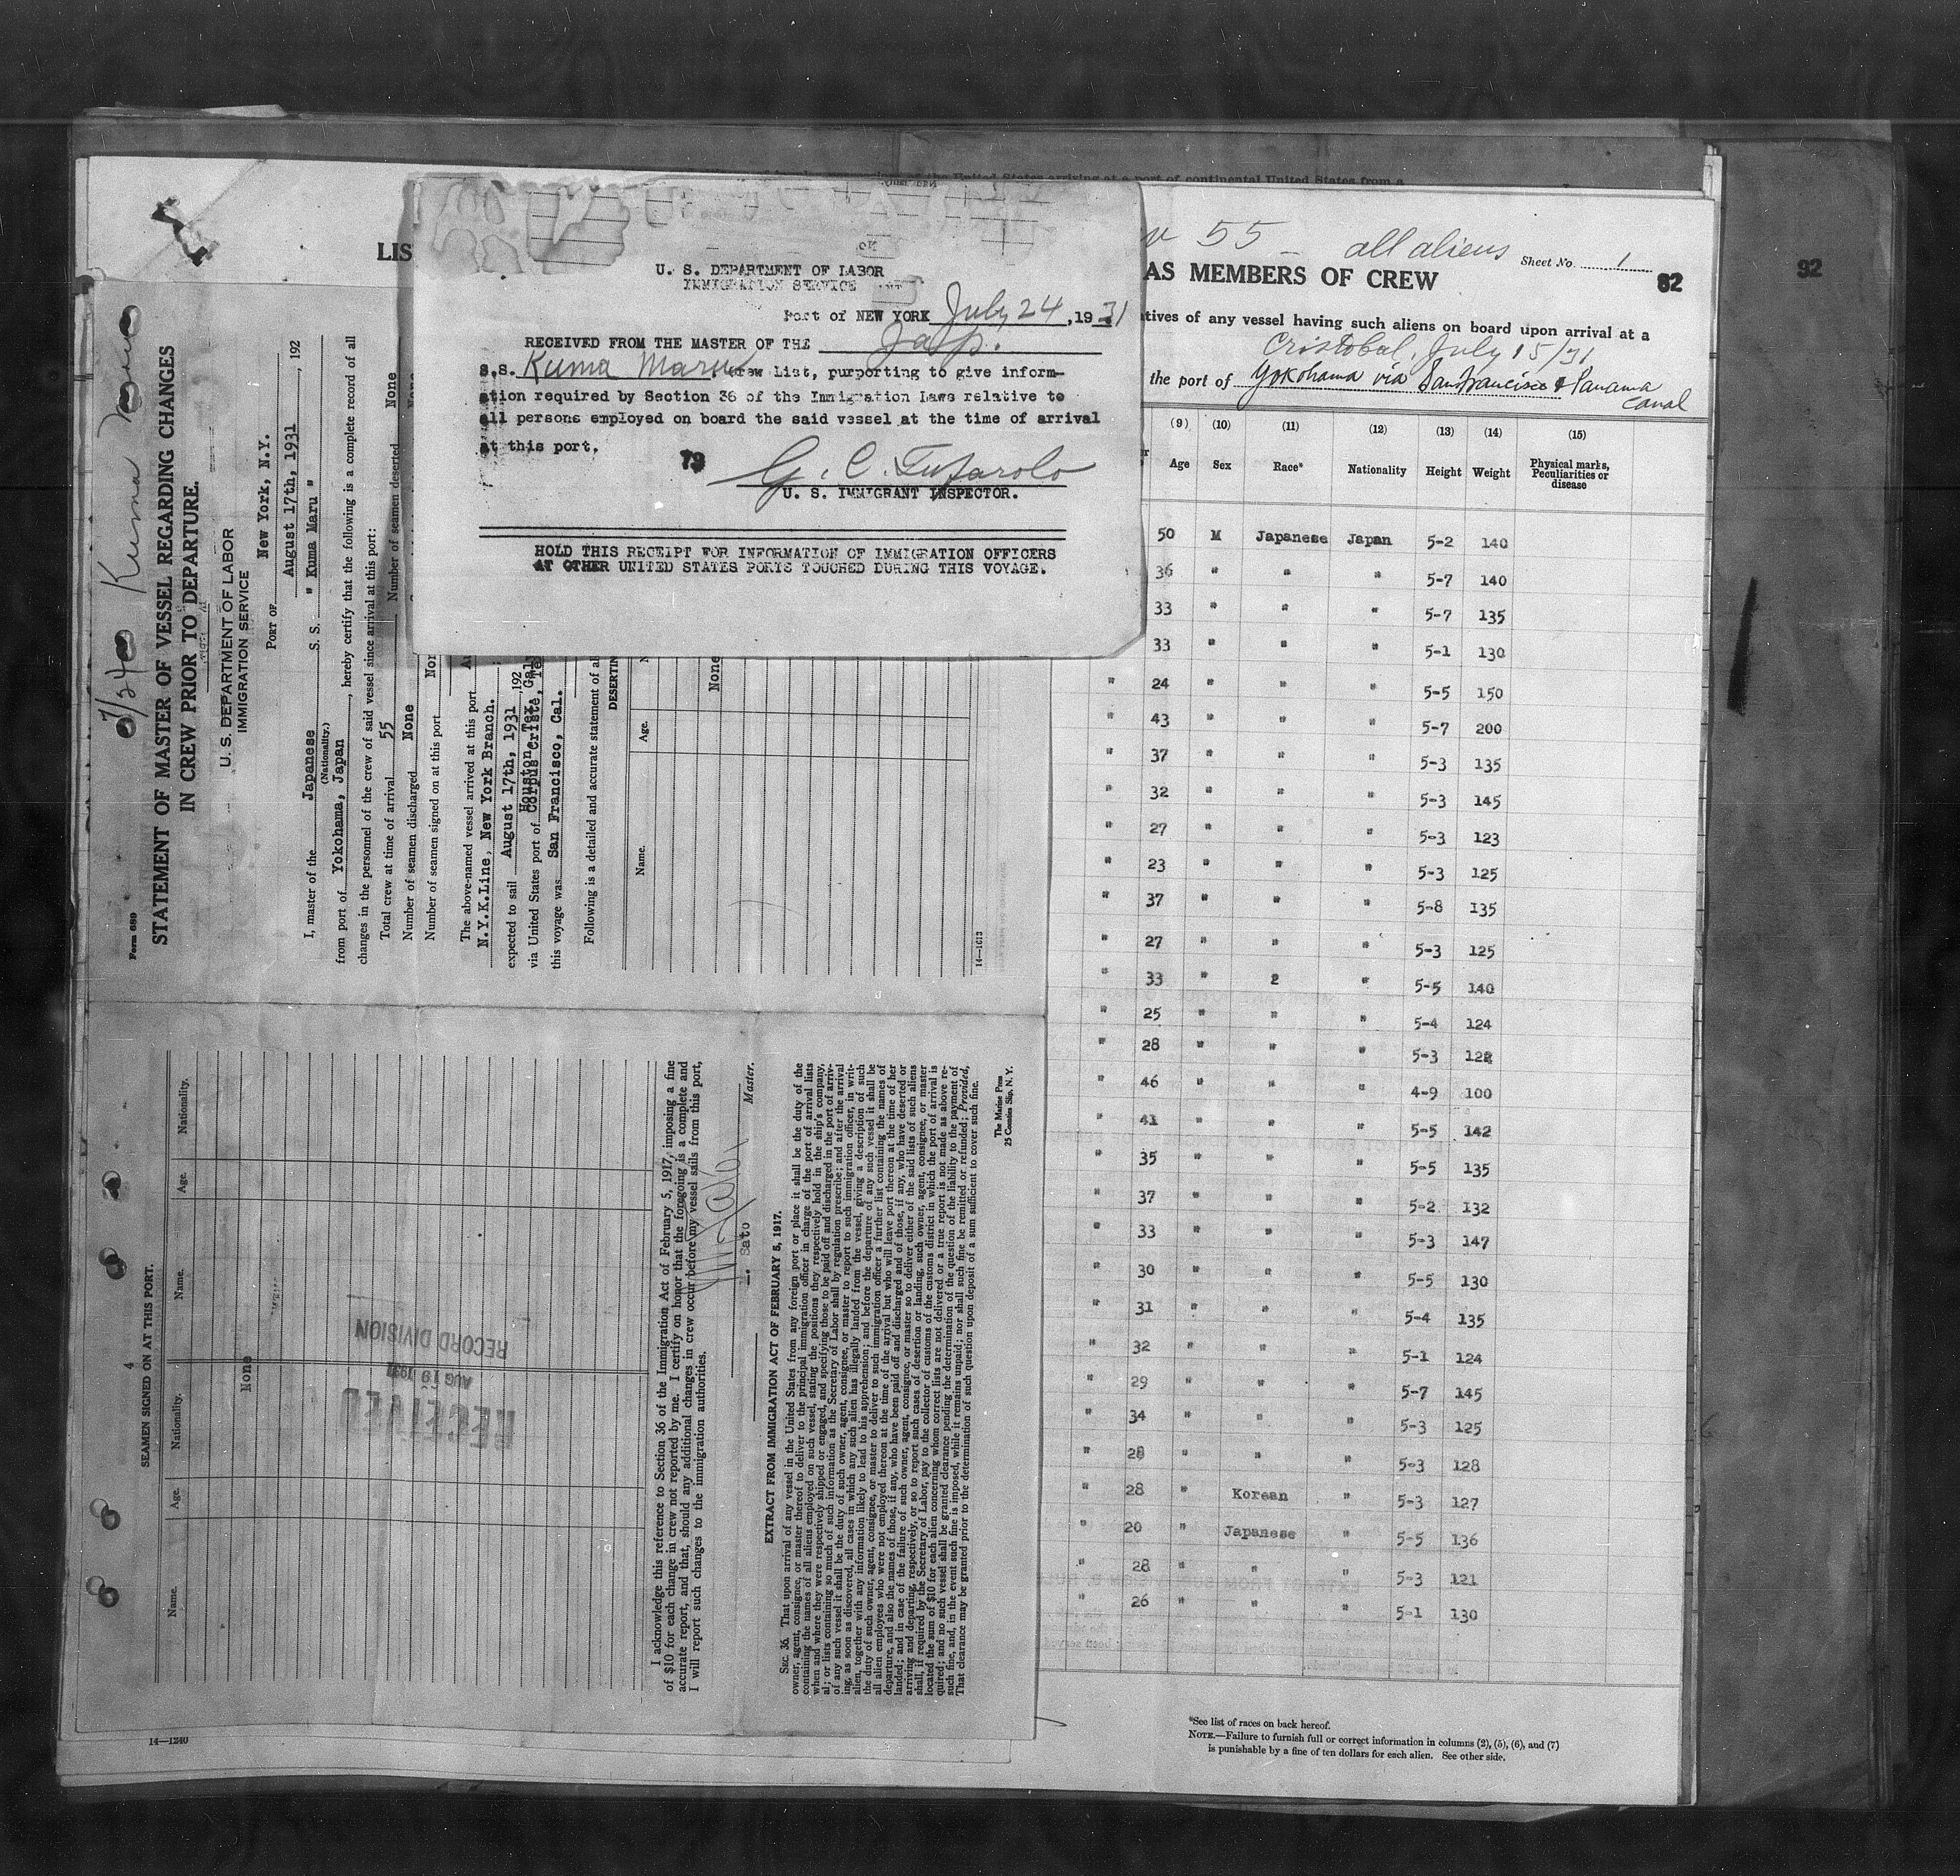 U. S. DEPARTMENT OF LABOR
IMMIGRATION SERVICE
Port of NEW YORK July 24, 1931
RECEIVED FROM THE MASTER OF THE Jap.
S.S. Kuma Maru, Crew List, purporting to give inform-
ation required by Section 36 of the Immigration Laws relative to
all persons employed on board the said vessel at the time of arrival
at this port.
79
U. S. IMMIGRANT INSPECTOR.
HOLD THIS RECEIPT FOR INFORMATION OF IMMIGRATION OFFICERS
AT OTHER UNITED STATES PORTS TOUCHED DURING THIS VOYAGE.
LIS
55 - all aliens Sheet No. 1
AS MEMBERS OF CREW
82
92
tives of any vessel having such aliens on board upon arrival at a
Cristobal, July 15/31
the port of Yokohama via San Francisco & Panama
Canal
(9) (10) (11) (12) (13) (14) (15)
Age Sex Race* Nationality Height Weight Physical marks,
Peculiarities or
disease
50 M Japanese Japan 5-2 140
36 " " " 5-7 140
33 " " " 5-7 135
33 " " " 5-1 130
" 24 " " " 5-5 150
" 43 " " " 5-7 200
" 37 " " " 5-3 135
" 32 " " " 5-3 145
" 27 " " " 5-3 123
" 23 " " " 5-3 125
" 37 " " " 5-8 135
" 27 " " " 5-3 125
" 33 " 2 " 5-5 140
" 25 " " " 5-4 124
" 28 " " " 5-3 122
" 46 " " " 4-9 100
" 41 " " " 5-5 142
" 35 " " " 5-5 135
" 37 " " " 5-2 132
" 33 " " " 5-3 147
" 30 " " " 5-5 130
" 31 " " " 5-4 135
" 32 " " " 5-1 124
" 29 " " " 5-7 145
" 34 " " " 5-3 125
" 28 " " " 5-3 128
" 28 " Korean " 5-3 127
" 20 " Japanese " 5-5 136
" 28 " " " 5-3 121
" 26 " " " 5-1 130
*See list of races on back hereof.
NOTE.—Failure to furnish full or correct information in columns (2), (5), (6), and (7)
is punishable by a fine of ten dollars for each alien. See other side.
7/24 Kuma Maru
Form 689
STATEMENT OF MASTER OF VESSEL REGARDING CHANGES
IN CREW PRIOR TO DEPARTURE.
U. S. DEPARTMENT OF LABOR
IMMIGRATION SERVICE
PORT OF New York, N.Y.
August 17th, 1931, 192
I, master of the Japanese S. S. " Kuma Maru "
(Nationality.)
from port of Yokohama, Japan, hereby certify that the following is a complete record of all
changes in the personnel of the crew of said vessel since arrival at this port:
Total crew at time of arrival 55 Number of seamen deserted None
Number of seamen discharged None
Number of seamen signed on at this port
The above-named vessel arrived at this port
N.Y.K.Line, New York Branch.
expected to sail August 17th, 1931, 192
via United States port of Corpus Criste,
Houston, Tex, Gal
this voyage was San Francisco, Cal.
Following is a detailed and accurate statement of al
DESERTIN
Name. Age.
None
14—1613
4
SEAMEN SIGNED ON AT THIS PORT.
Name. Age. Nationality. Name. Age. Nationality.
None
RECEIVED
AUG 19 1931
RECORD DIVISION
I acknowledge this reference to Section 36 of the Immigration Act of February 5, 1917, imposing a fine
of $10 for each change in crew not reported by me. I certify on honor that the foregoing is a complete and
accurate report, and that, should any additional changes in crew occur before my vessel sails from this port,
I will report such changes to the immigration authorities.
Sato
Master.
EXTRACT FROM IMMIGRATION ACT OF FEBRUARY 5, 1917.
SEC. 36. That upon arrival of any vessel in the United States from any foreign port or place it shall be the duty of the
owner, agent, consignee, or master thereof to deliver to the principal immigration officer in charge of the port of arrival lists
containing the names of all aliens employed on such vessel, stating the positions they respectively hold in the ship's company,
when and where they were respectively shipped or engaged, and specifying those to be paid off and discharged in the port of arriv-
al; or lists containing so much of such information as the Secretary of Labor shall by regulation prescribe; and after the arrival
of any such vessel it shall be the duty of such owner, agent, consignee, or master to report to such immigration officer, in writ-
ing, as soon as discovered, all cases in which any such alien has illegally landed from the vessel, giving a description of such
alien, together with any information likely to lead to his apprehension; and before the departure of any such vessel it shall be
the duty of such owner, agent, consignee, or master to deliver to such immigration officer a further list containing the names of
all alien employees who were not employed thereon at the time of the arrival but who will leave port thereon at the time of her
departure, and also the names of those, if any, who have been paid off and discharged and of those, if any, who have deserted or
landed; and in case of the failure of such owner, agent, consignee, or master so to deliver either of the said lists of such aliens
arriving and departing, respectively, or so to report such cases of desertion or landing, such owner, agent, consignee, or master
shall, if required by the Secretary of Labor, pay to the collector of customs of the customs district in which the port of arrival is
located the sum of $10 for each alien concerning whom correct lists are not delivered or a true report is not made as above re-
quired; and no such vessel shall be granted clearance pending the determination of the question of the liability to the payment of
such fine, and, in the event such fine is imposed, while it remains unpaid; nor shall such fine be remitted or refunded: Provided,
That clearance may be granted prior to the determination of such question upon deposit of a sum sufficient to cover such fine.
The Marine Press
25 Coenties Slip, N. Y.
14—1240